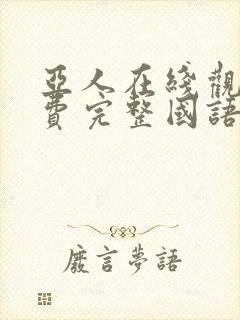 亞人在綫觀
費完整國語
廢言夢語